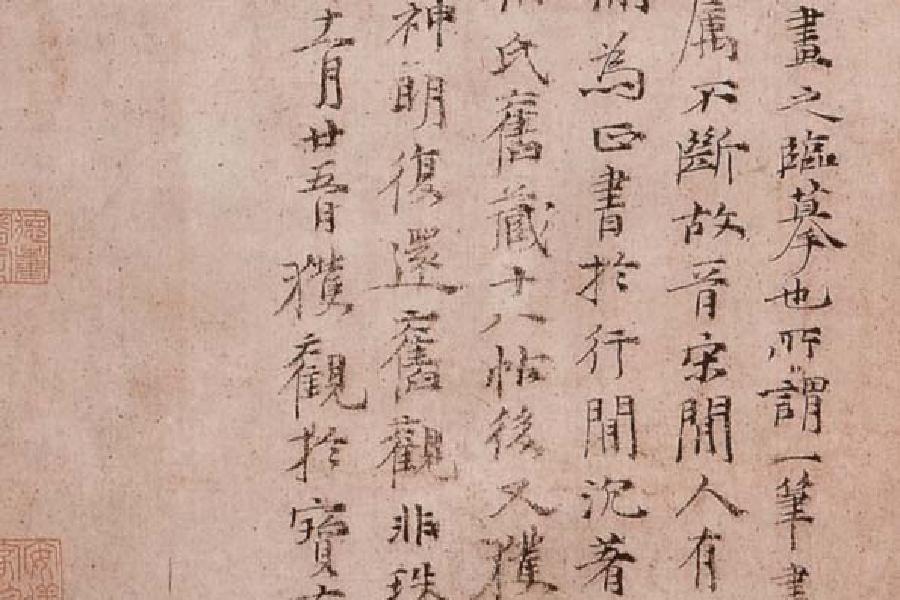 畫之臨摹也所謂一筆書
属不斷故晉宋閒人有
為正書於行閒沉著
氏舊藏十八帖後又獲
神明復還舊觀非
十一月廿五日獲觀於寶